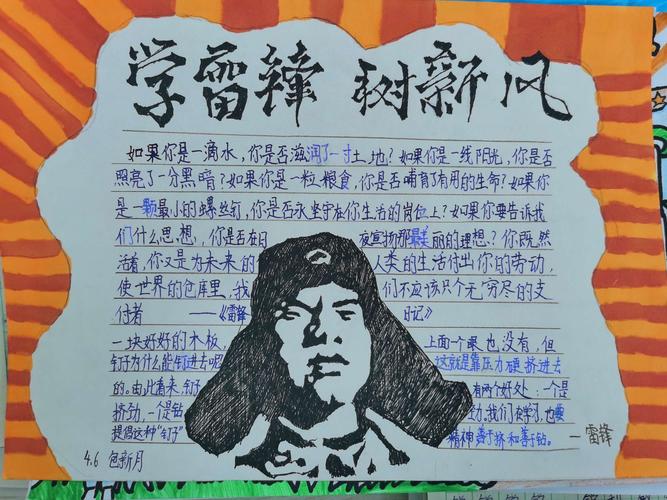 学雷锋 树新风
如果你是一滴水，你是否滋润了一寸土地？如果你是一线阳光，你是否
照亮了一分黑暗？如果你是一粒粮食，你是否哺育了有用的生命？如果你
是一颗最小的螺丝钉，你是否永坚守在你生活的岗位上？如果你要告诉我
们什么思想，你是否在日 夜宣扬那最美丽的理想？你既然
活着，你又是为未来的 人类的生活付出你的劳动，
使世界的仓库里，我 们不应该只个无穷尽的支
付者 ——《雷锋 日记》
一块好好的木板， 上面一个眼也没有，但
钉子为什么能钉进去呢 这就是靠压力硬挤进去
的。由此看来，钉子 有两个好处：一个是
挤劲，一个是钻 劲。我们在学习，也要
提倡这种"钉子" 精神善于挤和善于钻。
—雷锋
4.6 包新月